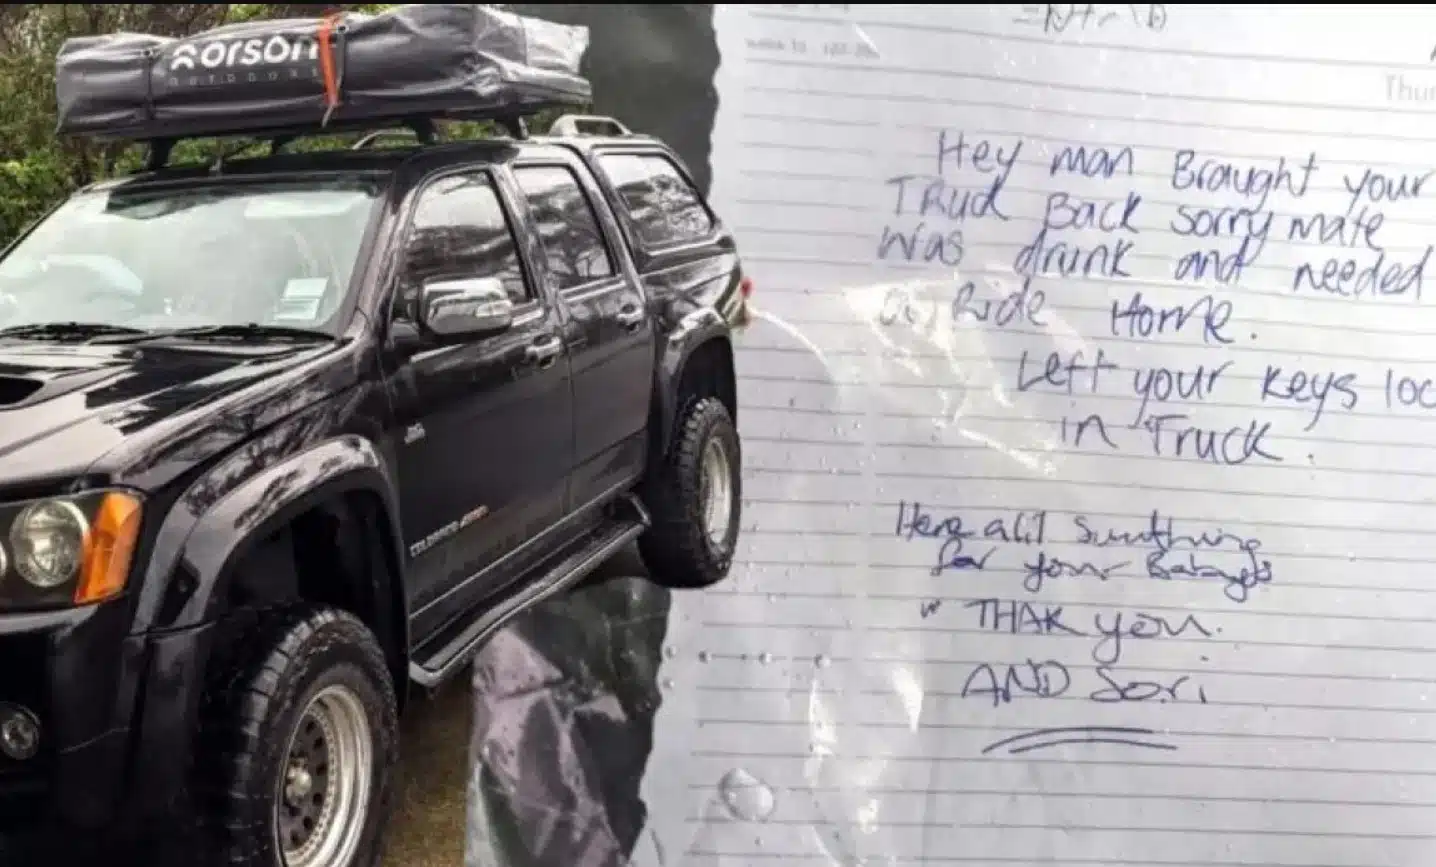 orson
OUTDOORS
COLORADO
Hey man Braught your
TRuck Back sorry mate
was drunk and needed
a Ride Home.
Left your keys loc
in Truck.
for your
" THAK you.
AND Sori